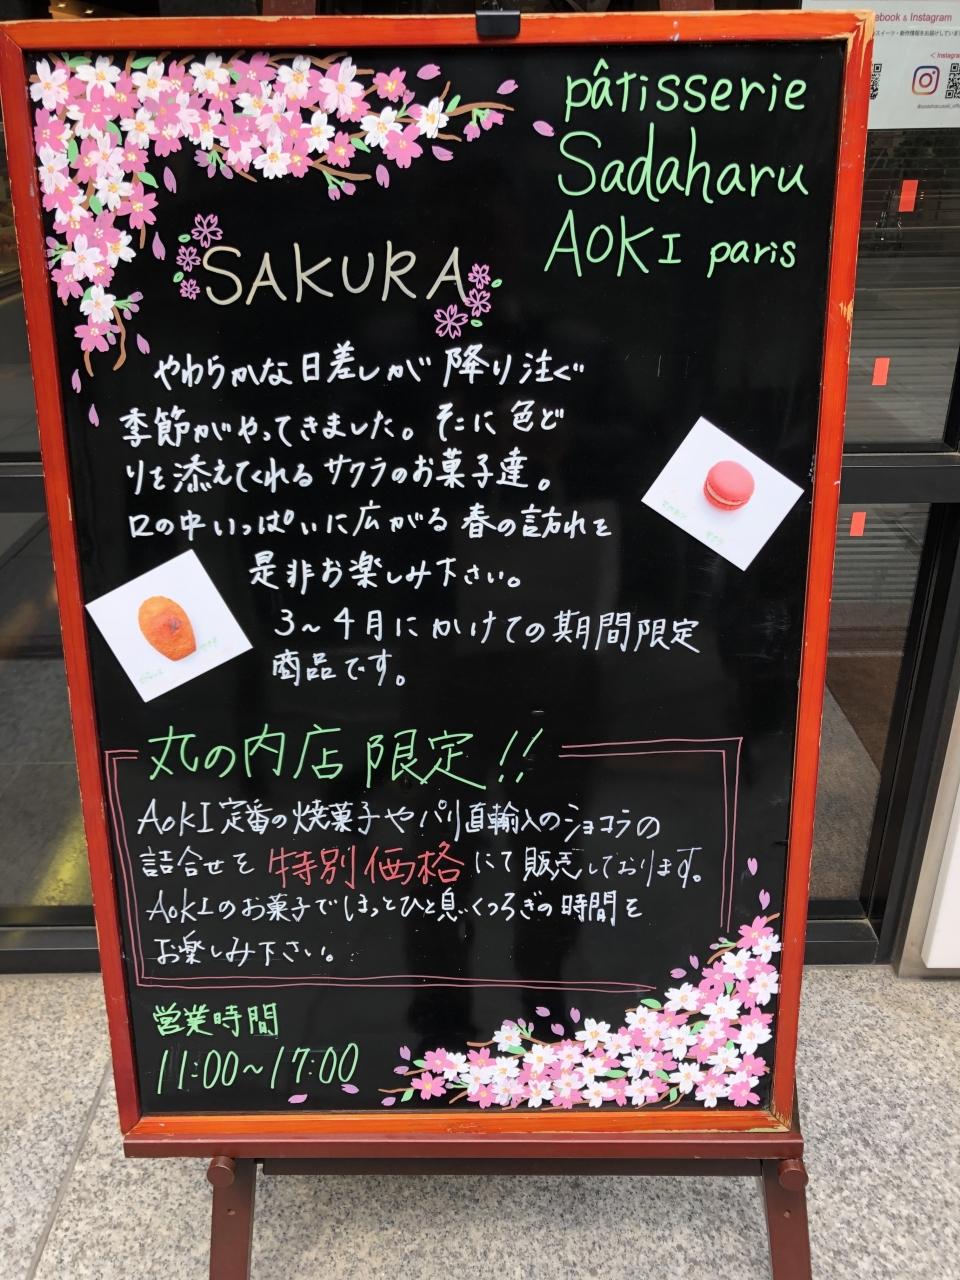 pâtisserie
Sadaharu
AOKI paris
SAKURA
やわらかな日差しが降り注ぐ
季節がやってきました。そこに色ど
りを添えてくれるサクラのお菓子達。
口の中いっぱいに広がる春の訪れを
是非お楽しみ下さい。
3~4月にかけての期間限定
商品です。
丸の内店限定!!
AOKI定番の焼菓子やパリ直輸入のショコラの
詰合せを特別価格にて販売しております。
AOKIのお菓子でほっとひと息、くつろぎの時間を
お楽しみ下さい。
営業時間
11:00~17:00
ebook & Instagram